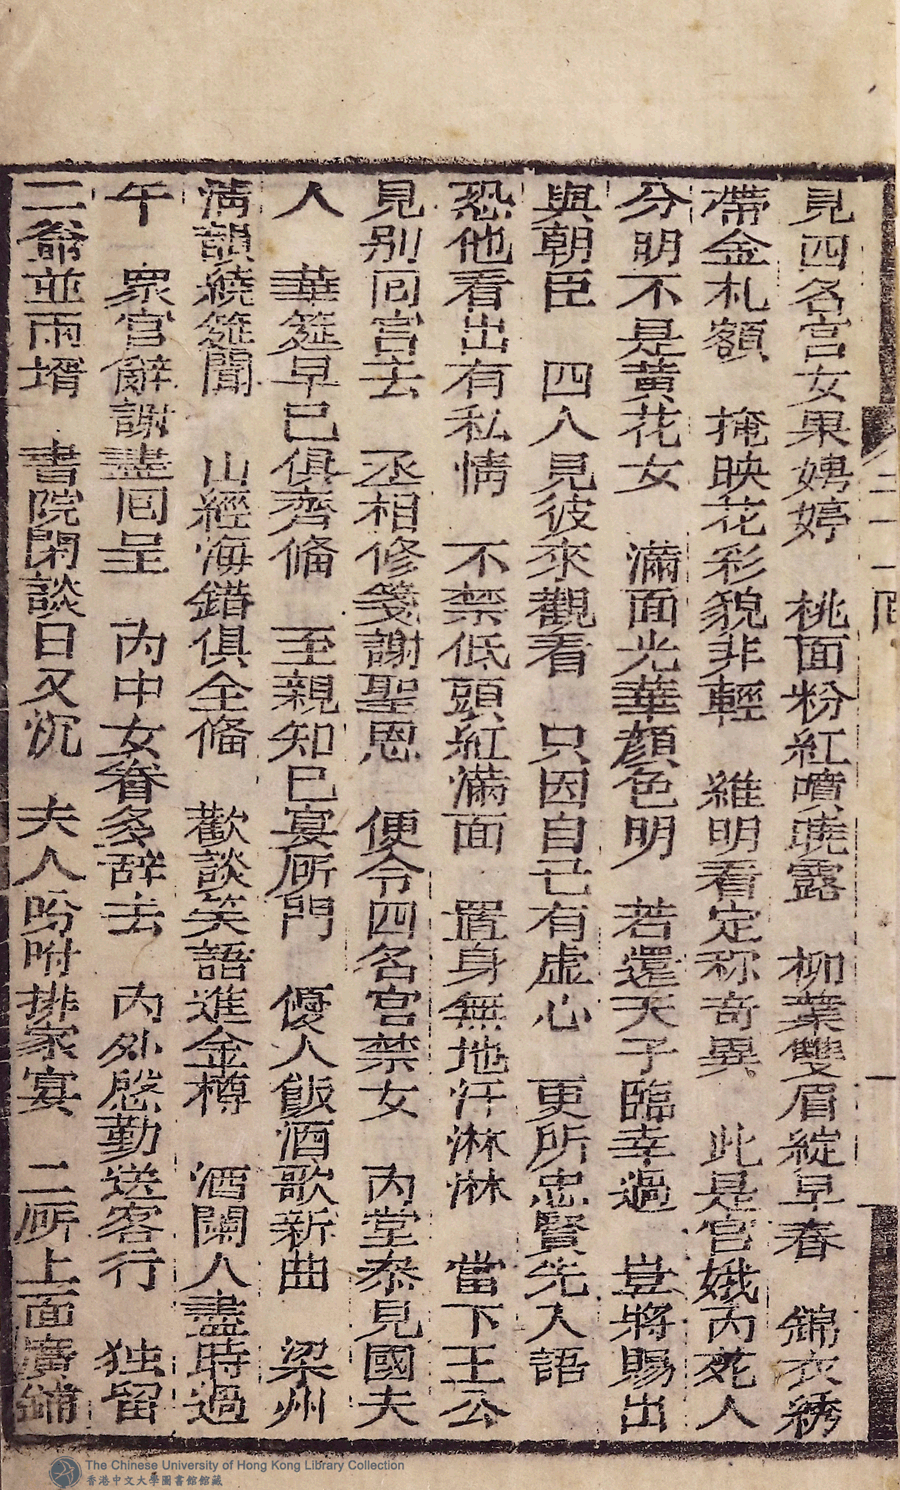 二十一回
一
見四名宮女果娉婷　桃面粉紅噴曉露　柳葉雙眉綻早春　錦衣綉
帶金札額　掩映花彩貌非輕　維明看定称奇異　此是宮娥内苑人
分明不是黄花女　滿面光華顏色明　若還天子臨幸過　豈將賜出
與朝臣　四人見彼來觀看　只因自己有虛心　更所忠賢先入語
恐他看出有私情　不禁低頭紅滿面　置身無地汗淋淋　當下王公
見别囘宫去　丞相修箋謝聖恩　便令四名宮禁女　内堂泰見國夫
人　華筵早已俱齊俻　至親知已宴厛門　優人飯酒歌新曲　梁州
清韻繞筵聞　山經海錯俱全俻　歡談笑語進金樽　酒闌人盡時過
午　衆官辭謝盡囘呈　内中女眷多辞去　内外慇勤送客行　独留
二爺並兩壻　書院閑談日又沉　夫人吩咐排家宴　二厛上面廣鋪
The Chinese University of Hong Kong Library Collection
香港中文大學圖書館館藏